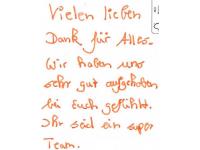 Vielen lieben
Dank für Alles.
Wir haben uns
sehr gut aufgehoben
bei Euch gefühlt.
Ihr seid ein super
Team.